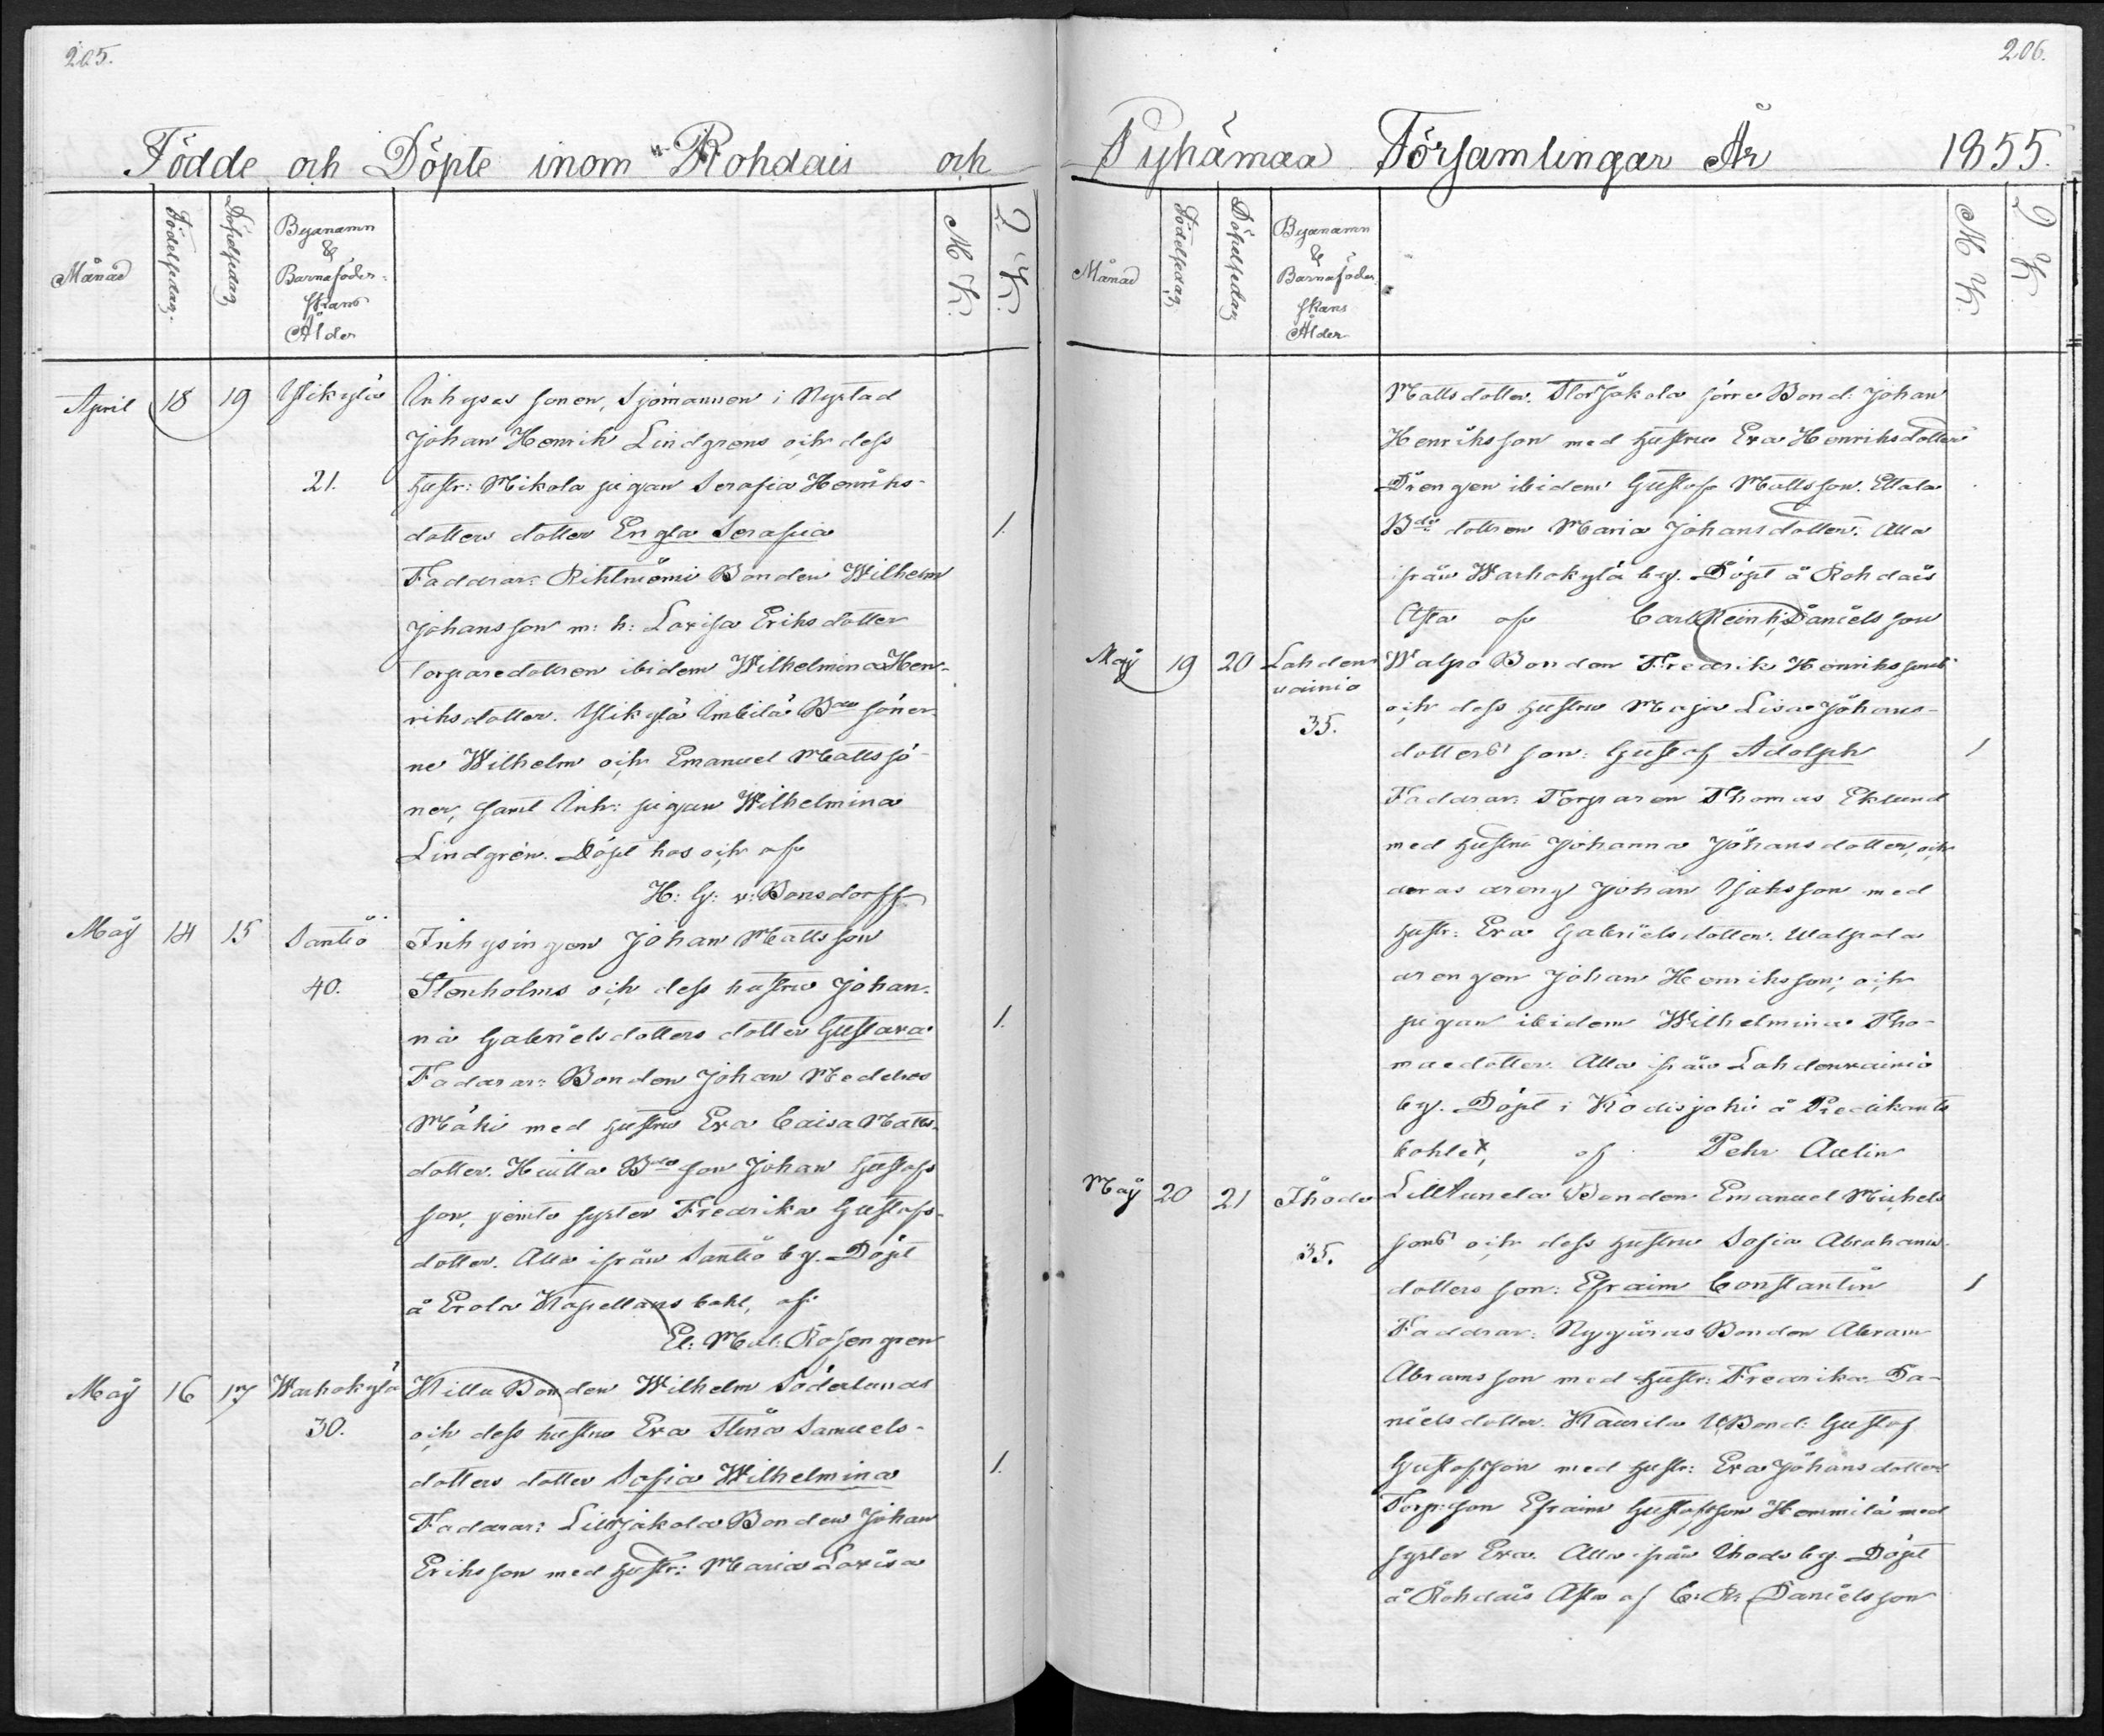 205.
Födde och Döpte inom Rohdais och
Månad
Födelsedag.
Döpelsedag
Byanamn
&
Barnaföder-
skans
Ålder
M K.
Q K.
April 18 19 Ylikylä Inhyses sonen, Sjömannen i Nystad
Johan Henrik Lindgrens och dess
21. hustr: Mikola pigan Serafia Henriks-
dotters dotter Engla Serafia 1.
Faddrar: Rihtniemi Bonden Wilhelm
Johansson m: h: Lovisa Eriksdotter
Torparedottren ibidem Wilhelmina Hen-
riksdotter. Ylikylä Bde söner-
ne Wilhelm och Emanuel Mattssö-
ner, samt Inh: pigan Wilhelmina
Lindgrén. Döpt hos och af
H: G: v: Bonsdorff
Maij 14 15 Santtio Inhysingen Johan Mattsson
40. Stenholms och dess hustru Johan-
na Gabrielsdotters dotter Gustava 1.
Faddrar: Bonden Johan
Mäki med hustru Eva Caisa Matts-
dotter. Huitta Bde son Johan Gustafs
son, jemte syster Fredrika Gustafs-
dotter. Alla ifrån Santtio by. Döpt
å Erola Kapellans bohl, af
El: Mat: Rosengren
Maij 16 17 Warhokylä Killu Bonden Wilhelm Söderlunds
30. och dess hustru Eva Stina Samuels-
dotters dotter Sofia Wilhelmina 1.
Faddrar: Lilljakola Bonden Johan
Eriksson med hustr: Maria Lovisa
206.
Pyhämaa Församlingar År 1855.
Månad
Födelsedag
Döpelsedag
Byanamn
&
Barnaföder
skans
Ålder
M K.
Q K
Mattsdotter. Storjakola förre Bond: Johan
Henriksson med hustru Eva Henriksdotter
Drengen ibidem Gustaf Mattsson. Ettala
Bde dottren Maria Johansdotter. Alla
ifrån Warhokylä by. Döpt å Rohdais
Asta af Carl Reinh: Danielsson
Maij 19 20 Lahden- Walpo Bonden Fredrik Henrikssons
vainio
och dess hustru Maja Lisa Johans-
35.
dotters son: Gustaf Adolph 1
Faddrar: Torparen Thomas Eklund
med hustru Johanna Johansdotter, och
deras dreng Johan Isaksson med
hustr: Eva Gabrielsdotter. Walpola
drengen Johan Henriksson; och
pigan ibidem Wilhelmina Tho-
maedotter. Alla ifrån Lahdenvainio
by. Döpt i Kodisjoki å Predikants
bohlet, af Pehr Aulin
Maij 20 21 Ihode Lilltunela Bonden Emanuel Michels
35. sons och dess hustru Sofia Abrahams-
dotters son: Efraim Constantin 1
Faddrar: Nygårds Bonden Abram
Abramsson med hustr: Fredrika Da-
nielsdotter. Kaurila Bond: Gustaf
Gustafsson med hustr: Eva Johansdotter
Torp: son Efraim Gustafsson Hemmilä med
syster Eva. Alla ifrån Ihode by. Döpt
å Rohdais Asta af C: R: Danielsson